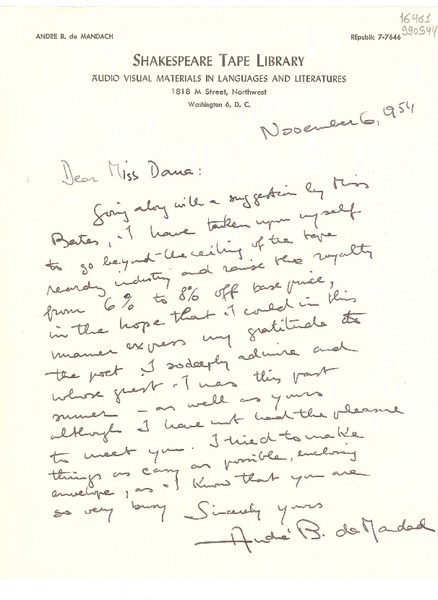 16451
990544
ANDRE B. de MANDACH
REpublic 7-7646
SHAKESPEARE TAPE LIBRARY
AUDIO VISUAL MATERIALS IN LANGUAGES AND LITERATURES
1818 M Street, Northwest
Washington 6, D. C.
November 6, 1954
Dear Miss Dana:
Going along with a suggestion by Miss
Bates, I have taken upon myself
to go beyond the ceiling of the tape
recording industry and raise the royalty
from 6% to 8% off base price,
in the hope that I could in this
manner express my gratitude to
the poet I so deeply admire and
whose guest I was this past
summer – as well as yours
although I have not had the pleasure
to meet you. I tried to make
things as easy as possible, enclosing
envelope, as I know that you are
so very busy
Sincerely yours
André B. de Mandach